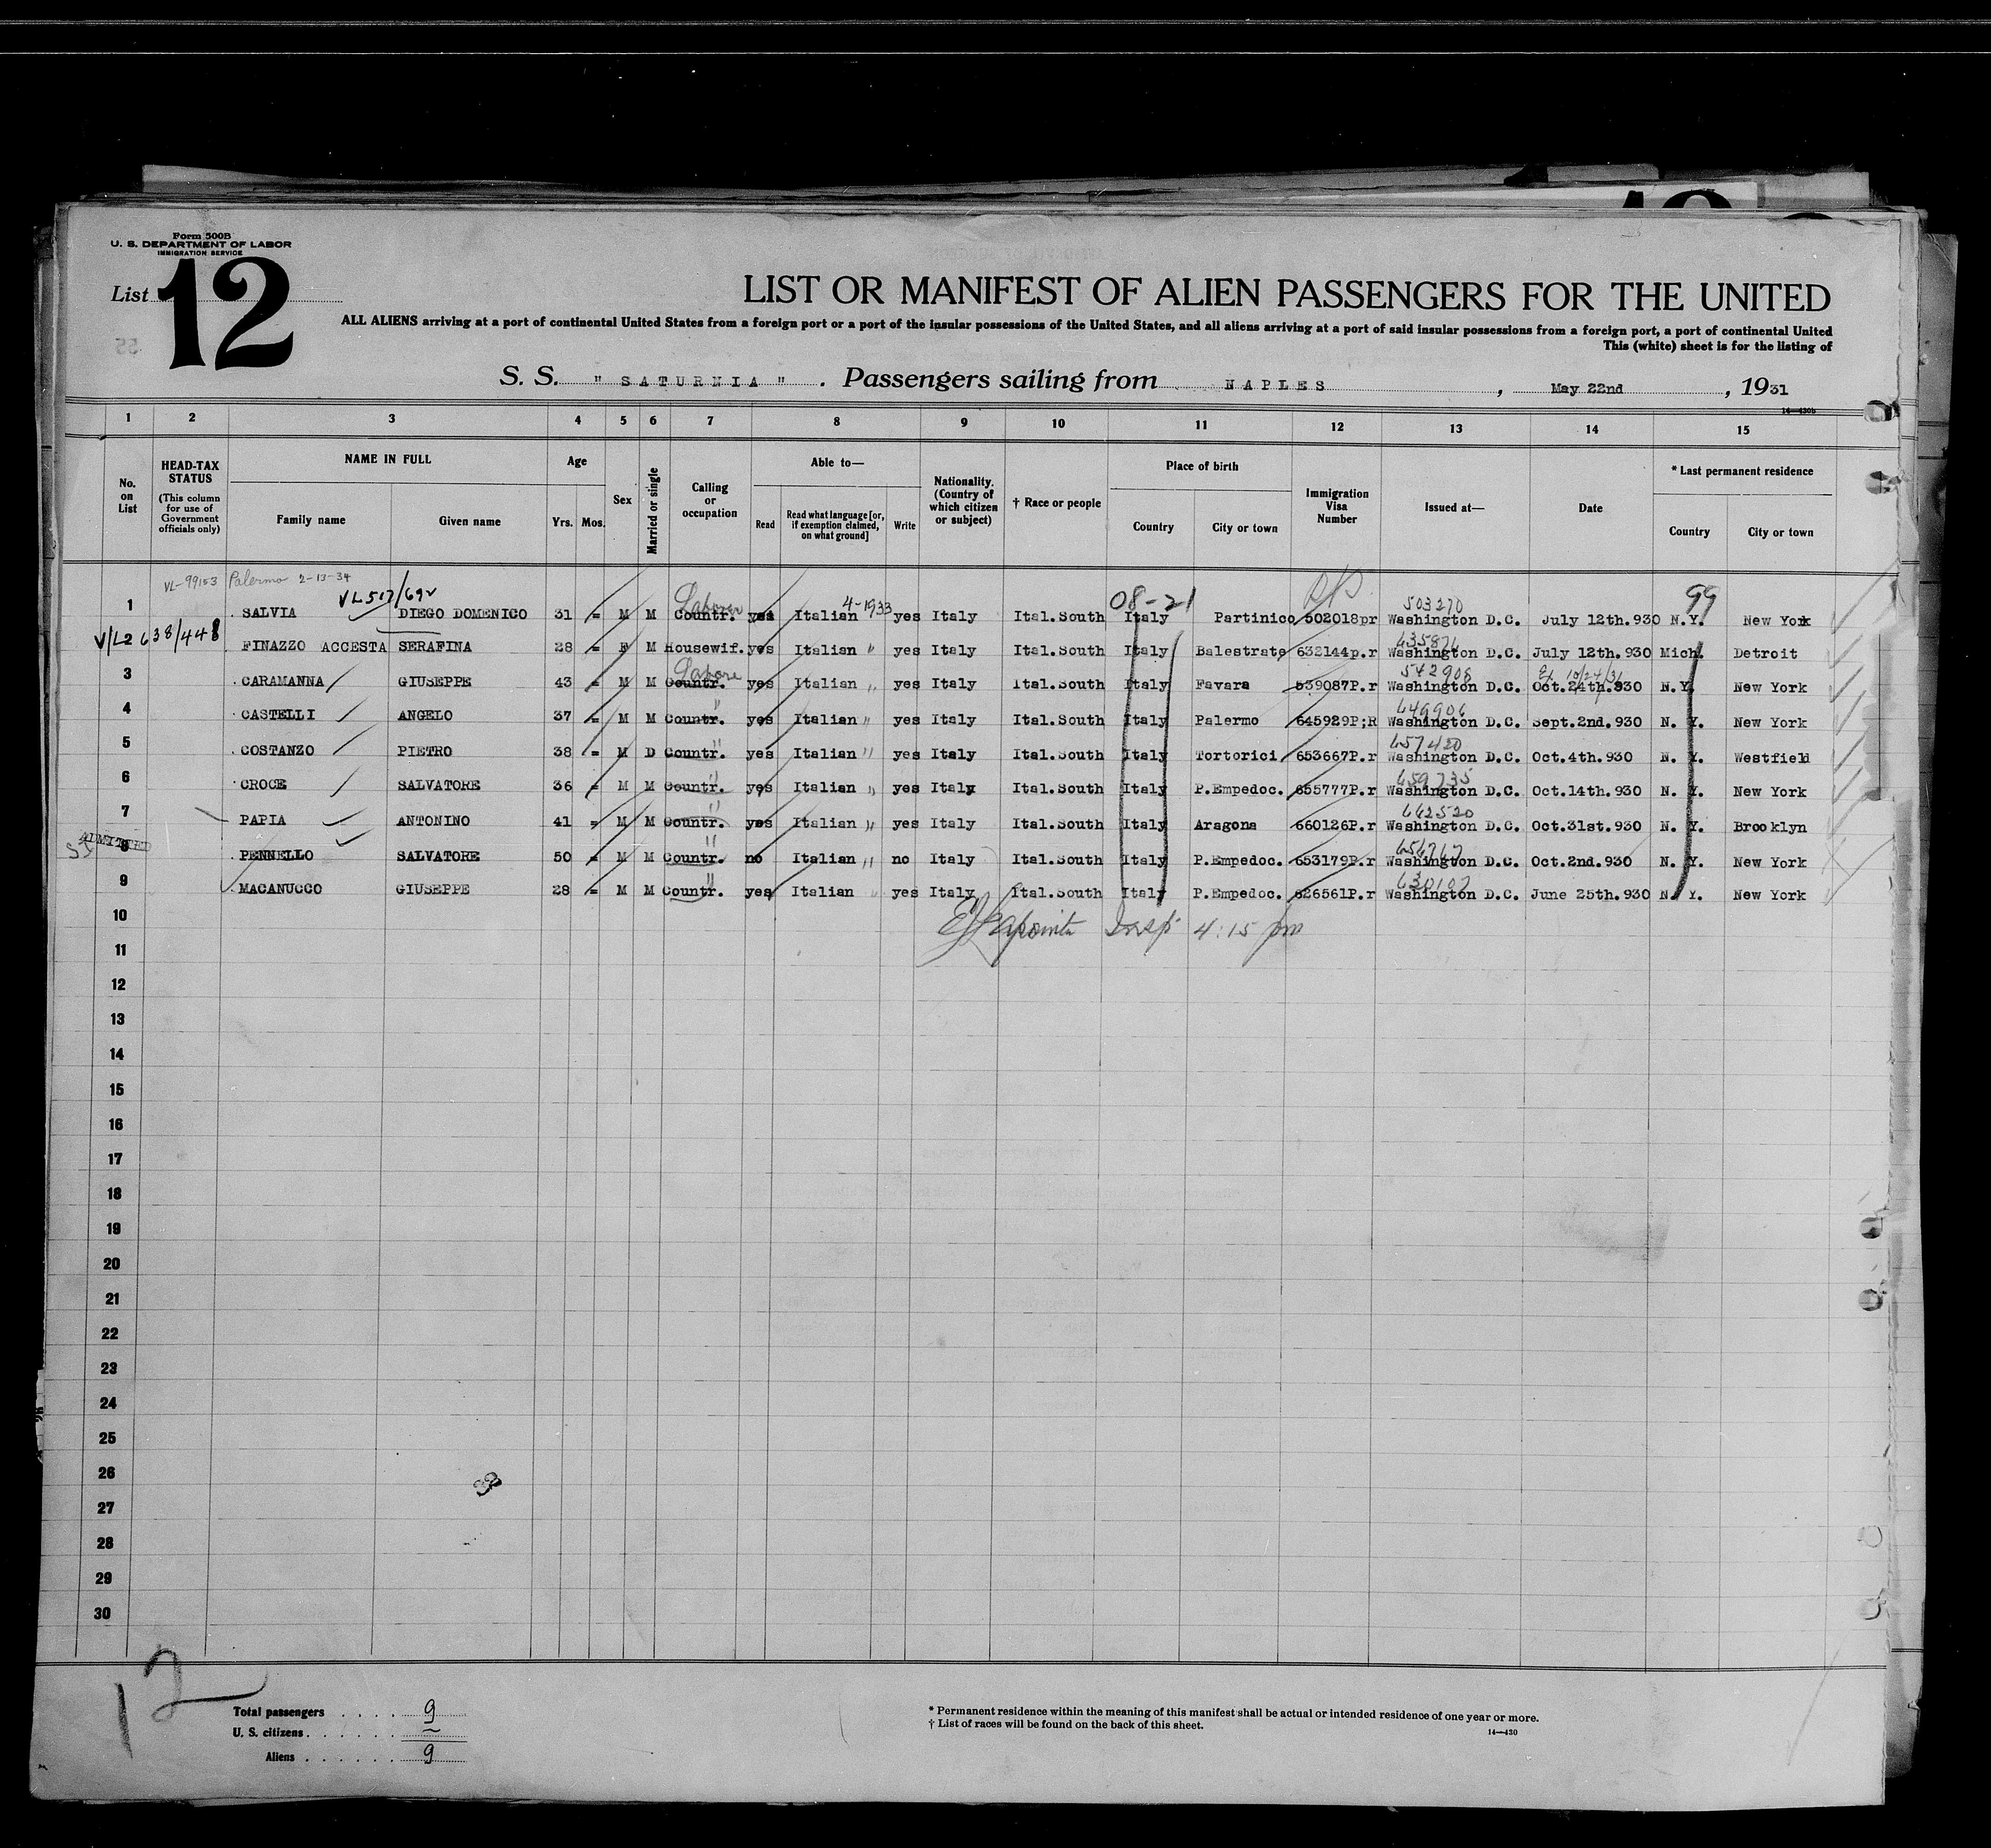 Form 500B
U. S. DEPARTMENT OF LABOR
IMMIGRATION SERVICE
List 12
LIST OR MANIFEST OF ALIEN PASSENGERS FOR THE UNITED
ALL ALIENS arriving at a port of continental United States from a foreign port or a port of the insular possessions of the United States, and all aliens arriving at a port of said insular possessions from a foreign port, a port of continental United
This (white) sheet is for the listing of
S. S. " SATURNIA " . Passengers sailing from NAPLES , May 22nd , 1931
14—430b
1 2 3 4 5 6 7 8 9 10 11 12 13 14 15
No. on List
HEAD-TAX STATUS (This column for use of Government officials only)
NAME IN FULL
Family name Given name
Age
Yrs. Mos.
Sex
Married or single
Calling or occupation
Able to—
Read Read what language [or, if exemption claimed, on what ground] Write
Nationality. (Country of which citizen or subject)
† Race or people
Place of birth
Country City or town
Immigration Visa Number
Issued at—
Date
* Last permanent residence
Country City or town
VL-99153 Palermo 2-13-34
VL517/692 Laborer 4-1933 08-21 503270 99
1 SALVIA DIEGO DOMENICO 31 = M M Countr. yes Italian yes Italy Ital.South Italy Partinico 502018pr Washington D.C. July 12th.930 N.Y. New York
V/L2 638/448 635876
FINAZZO ACCESTA SERAFINA 28 = F M Housewif. yes Italian " yes Italy Ital.South Italy Balestrate 632144p.r Washington D.C. July 12th.930 Mich. Detroit
Labore 542908 Ex 10/24/31
3 CARAMANNA GIUSEPPE 43 = M M Countr. yes Italian " yes Italy Ital.South Italy Favara 539087P.r Washington D.C. Oct.24th.930 N.Y. New York
" 649906
4 CASTELLI ANGELO 37 = M M Countr. yes Italian " yes Italy Ital.South Italy Palermo 645929P;R Washington D.C. Sept.2nd.930 N. Y. New York
" 657420
5 COSTANZO PIETRO 38 = M D Countr. yes Italian " yes Italy Ital.South Italy Tortorici 653667P.r Washington D.C. Oct.4th.930 N. Y. Westfield
" 659735
6 CROCE SALVATORE 36 = M M Countr. yes Italian " yes Italy Ital.South Italy P.Empedoc. 655777P.r Washington D.C. Oct.14th.930 N. Y. New York
" 662520
7 PAPIA ANTONINO 41 = M M Countr. yes Italian " yes Italy Ital.South Italy Aragona 660126P.r Washington D.C. Oct.31st.930 N. Y. Brooklyn
ADMITTED " 656767
8 PENNELLO SALVATORE 50 = M M Countr. no Italian " no Italy Ital.South Italy P.Empedoc. 653179P.r Washington D.C. Oct.2nd.930 N. Y. New York
" 630107
9 MACANUCCO GIUSEPPE 28 = M M Countr. yes Italian " yes Italy Ital.South Italy P.Empedoc. 626561P.r Washington D.C. June 25th.930 N. Y. New York
10
Insp 4:15 pm
11
12
13
14
15
16
17
18
19
20
21
22
23
24
25
26
27
28
29
30
12
Total passengers . . . . 9
U. S. citizens . . . . . . ~
Aliens . . . . . . 9
* Permanent residence within the meaning of this manifest shall be actual or intended residence of one year or more.
† List of races will be found on the back of this sheet.
14—430